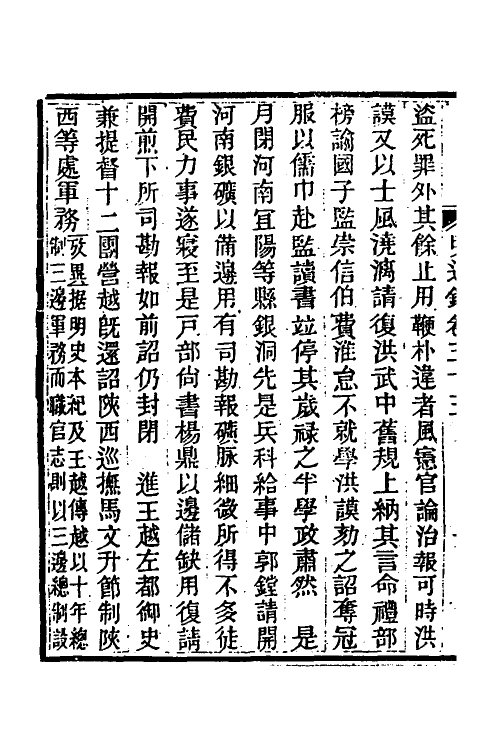 盜死罪外其餘止用鞭朴違者風憲官論治報可時洪
謨又以士風澆漓請復洪武中舊規上納其言命禮部
榜諭國子監崇信伯費淮怠不就學洪謨劾之詔奪冠
服以儒巾赴監讀書竝停其歲祿之半學政肅然　是
月閉河南宜陽等縣銀洞先是兵科給事中郭鏜請開
河南銀礦以備邊用有司勘報礦脈細微所得不多徒
費民力事遂寢至是戸部尙書楊鼎以邊儲缺用復請
開煎下所司勘報如前詔仍封閉　進王越左都御史
兼提督十二團營越旣還詔陜西巡撫馬文升節制陜
西等處軍務
攷異據明史本紀及王越傳越以十年總
制三邊軍務而職官志則以三邊總制設